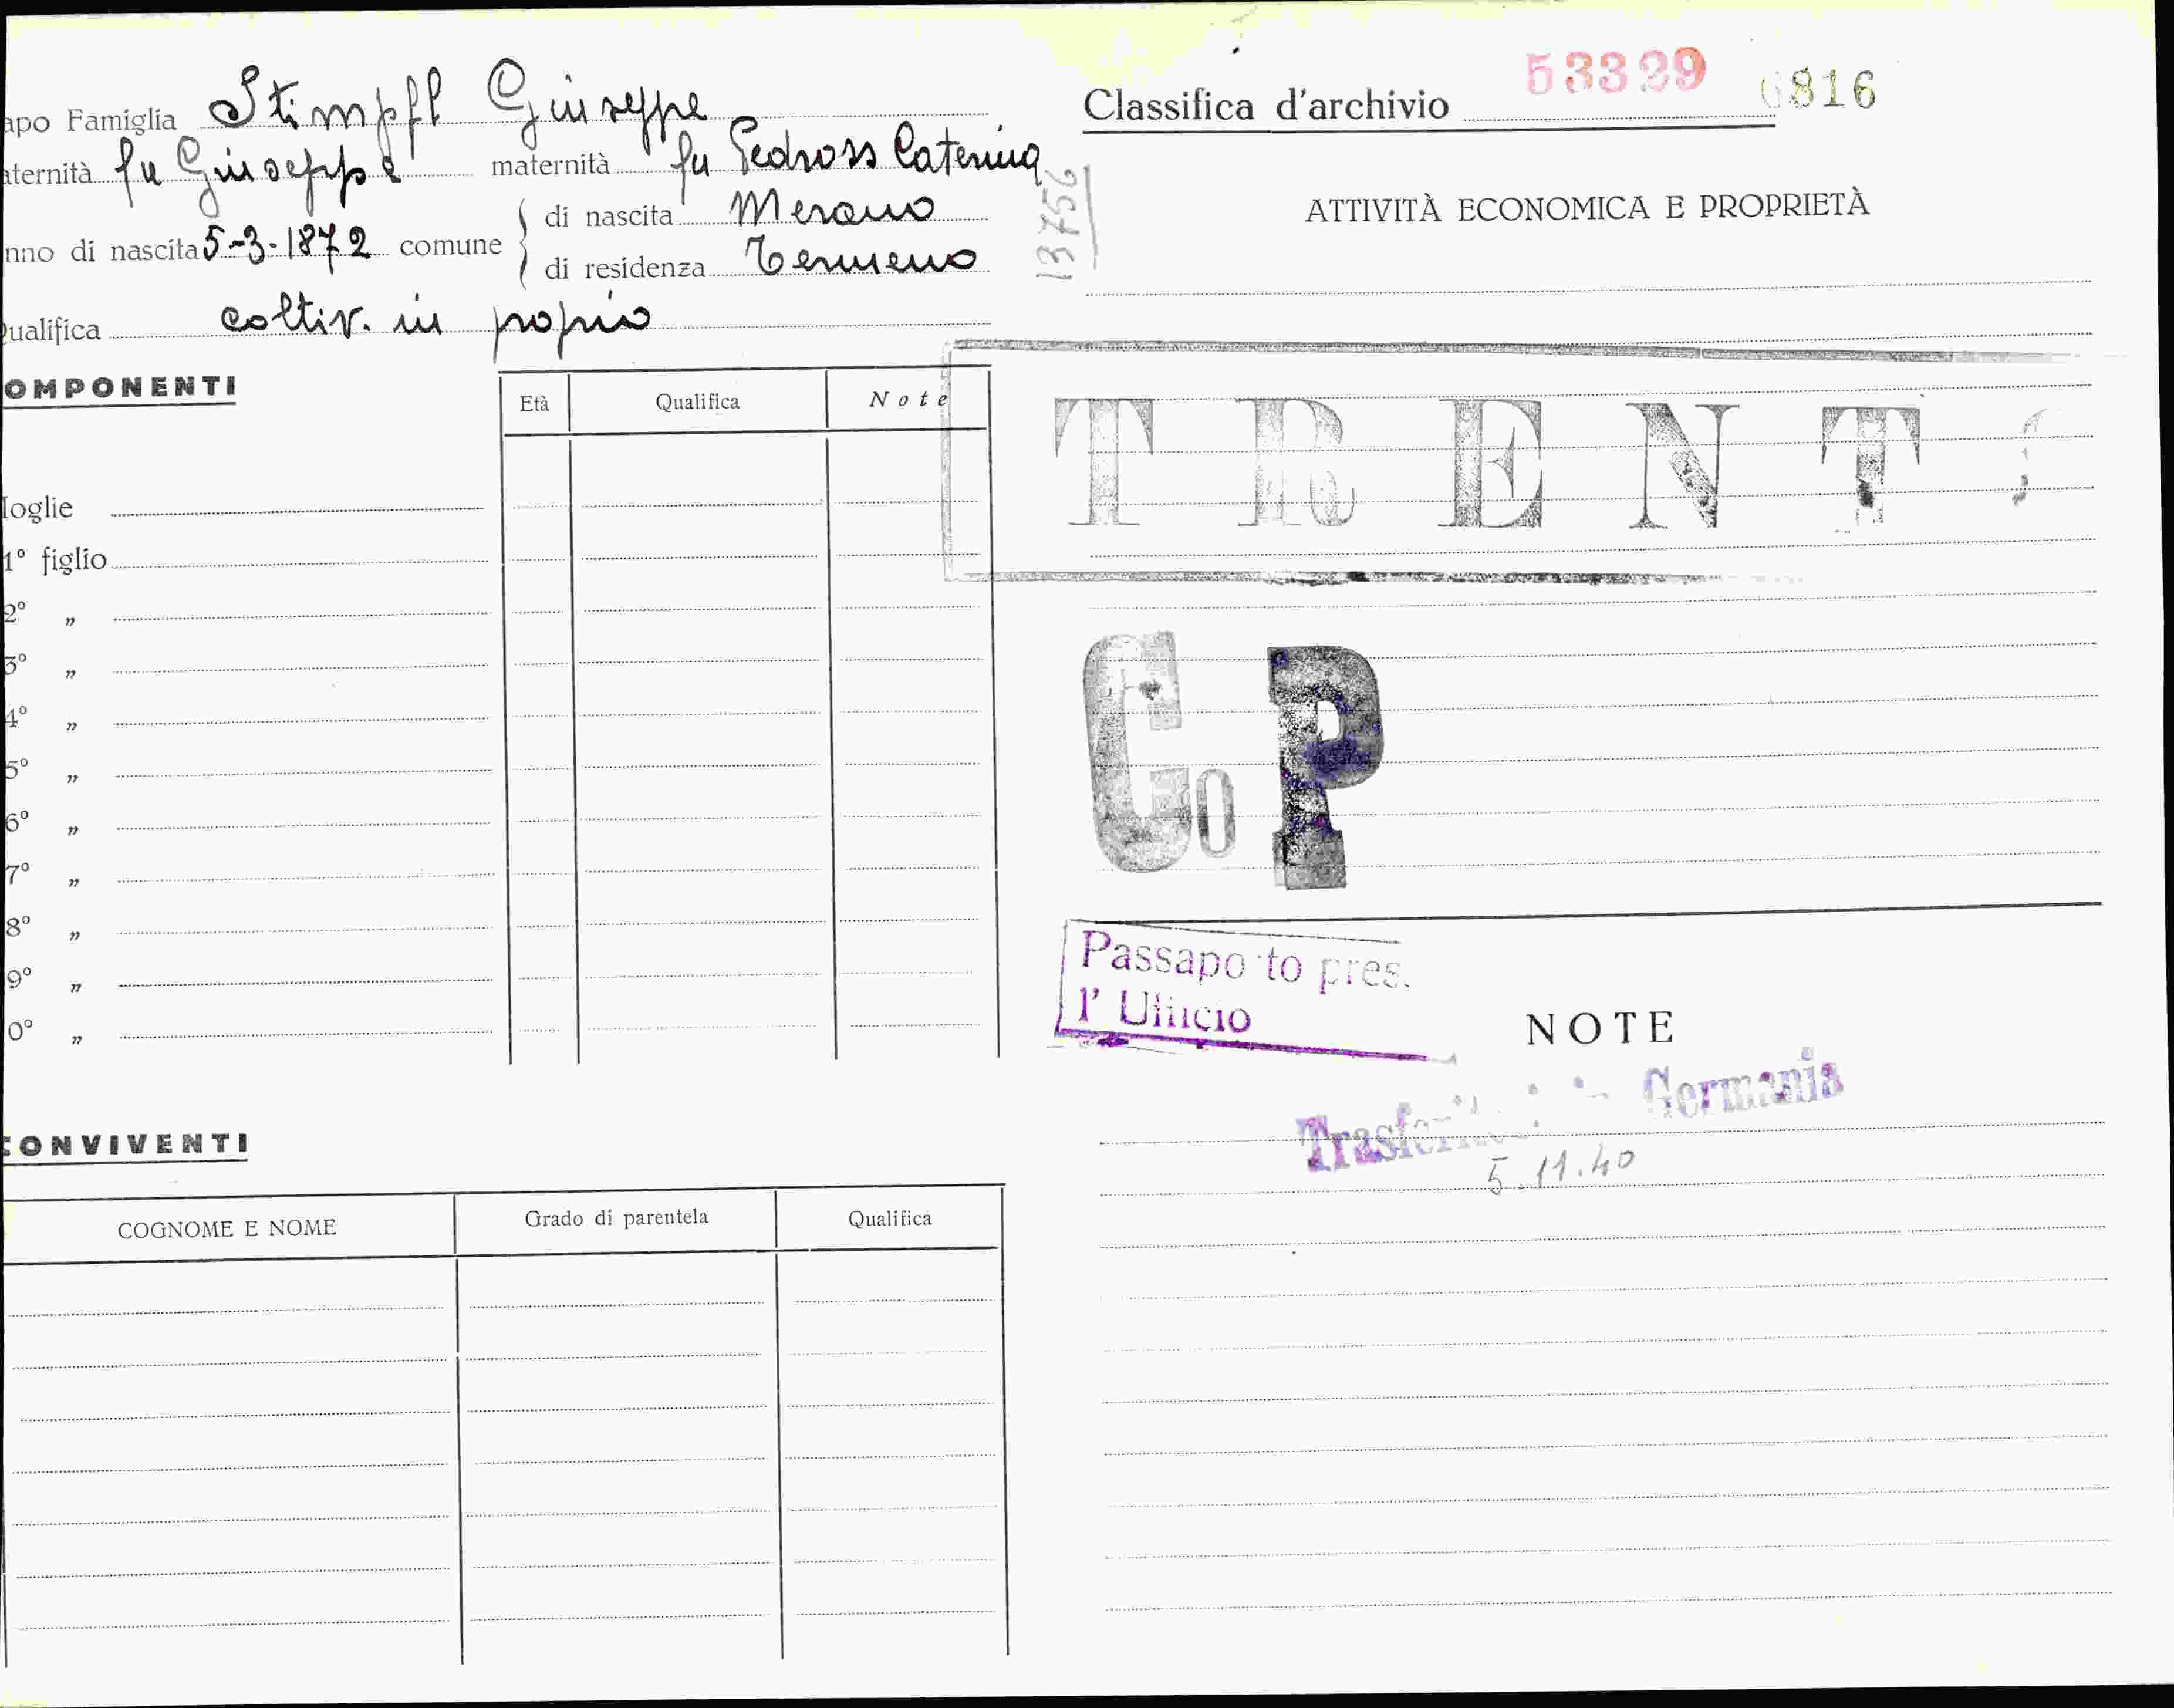 apo Famiglia Stimpfl Giuseppe
aternità fu Giuseppe maternità fu Pedross Caterina
nno di nascita 5-3-1872 comune di nascita Merano
di residenza Termeno
ualifica coltiv. in proprio
OMPONENTI
Età Qualifica Note
loglie
1° figlio
2° „
3° „
4° „
5° „
6° „
7° „
8° „
9° „
0° „
CONVIVENTI
COGNOME E NOME Grado di parentela Qualifica
13756
Classifica d'archivio 53339 6816
ATTIVITÀ ECONOMICA E PROPRIETÀ
TRENTO
Co P
Passapo to pres.
l' Ufficio
NOTE
Trasferitosi in Germania
5.11.40